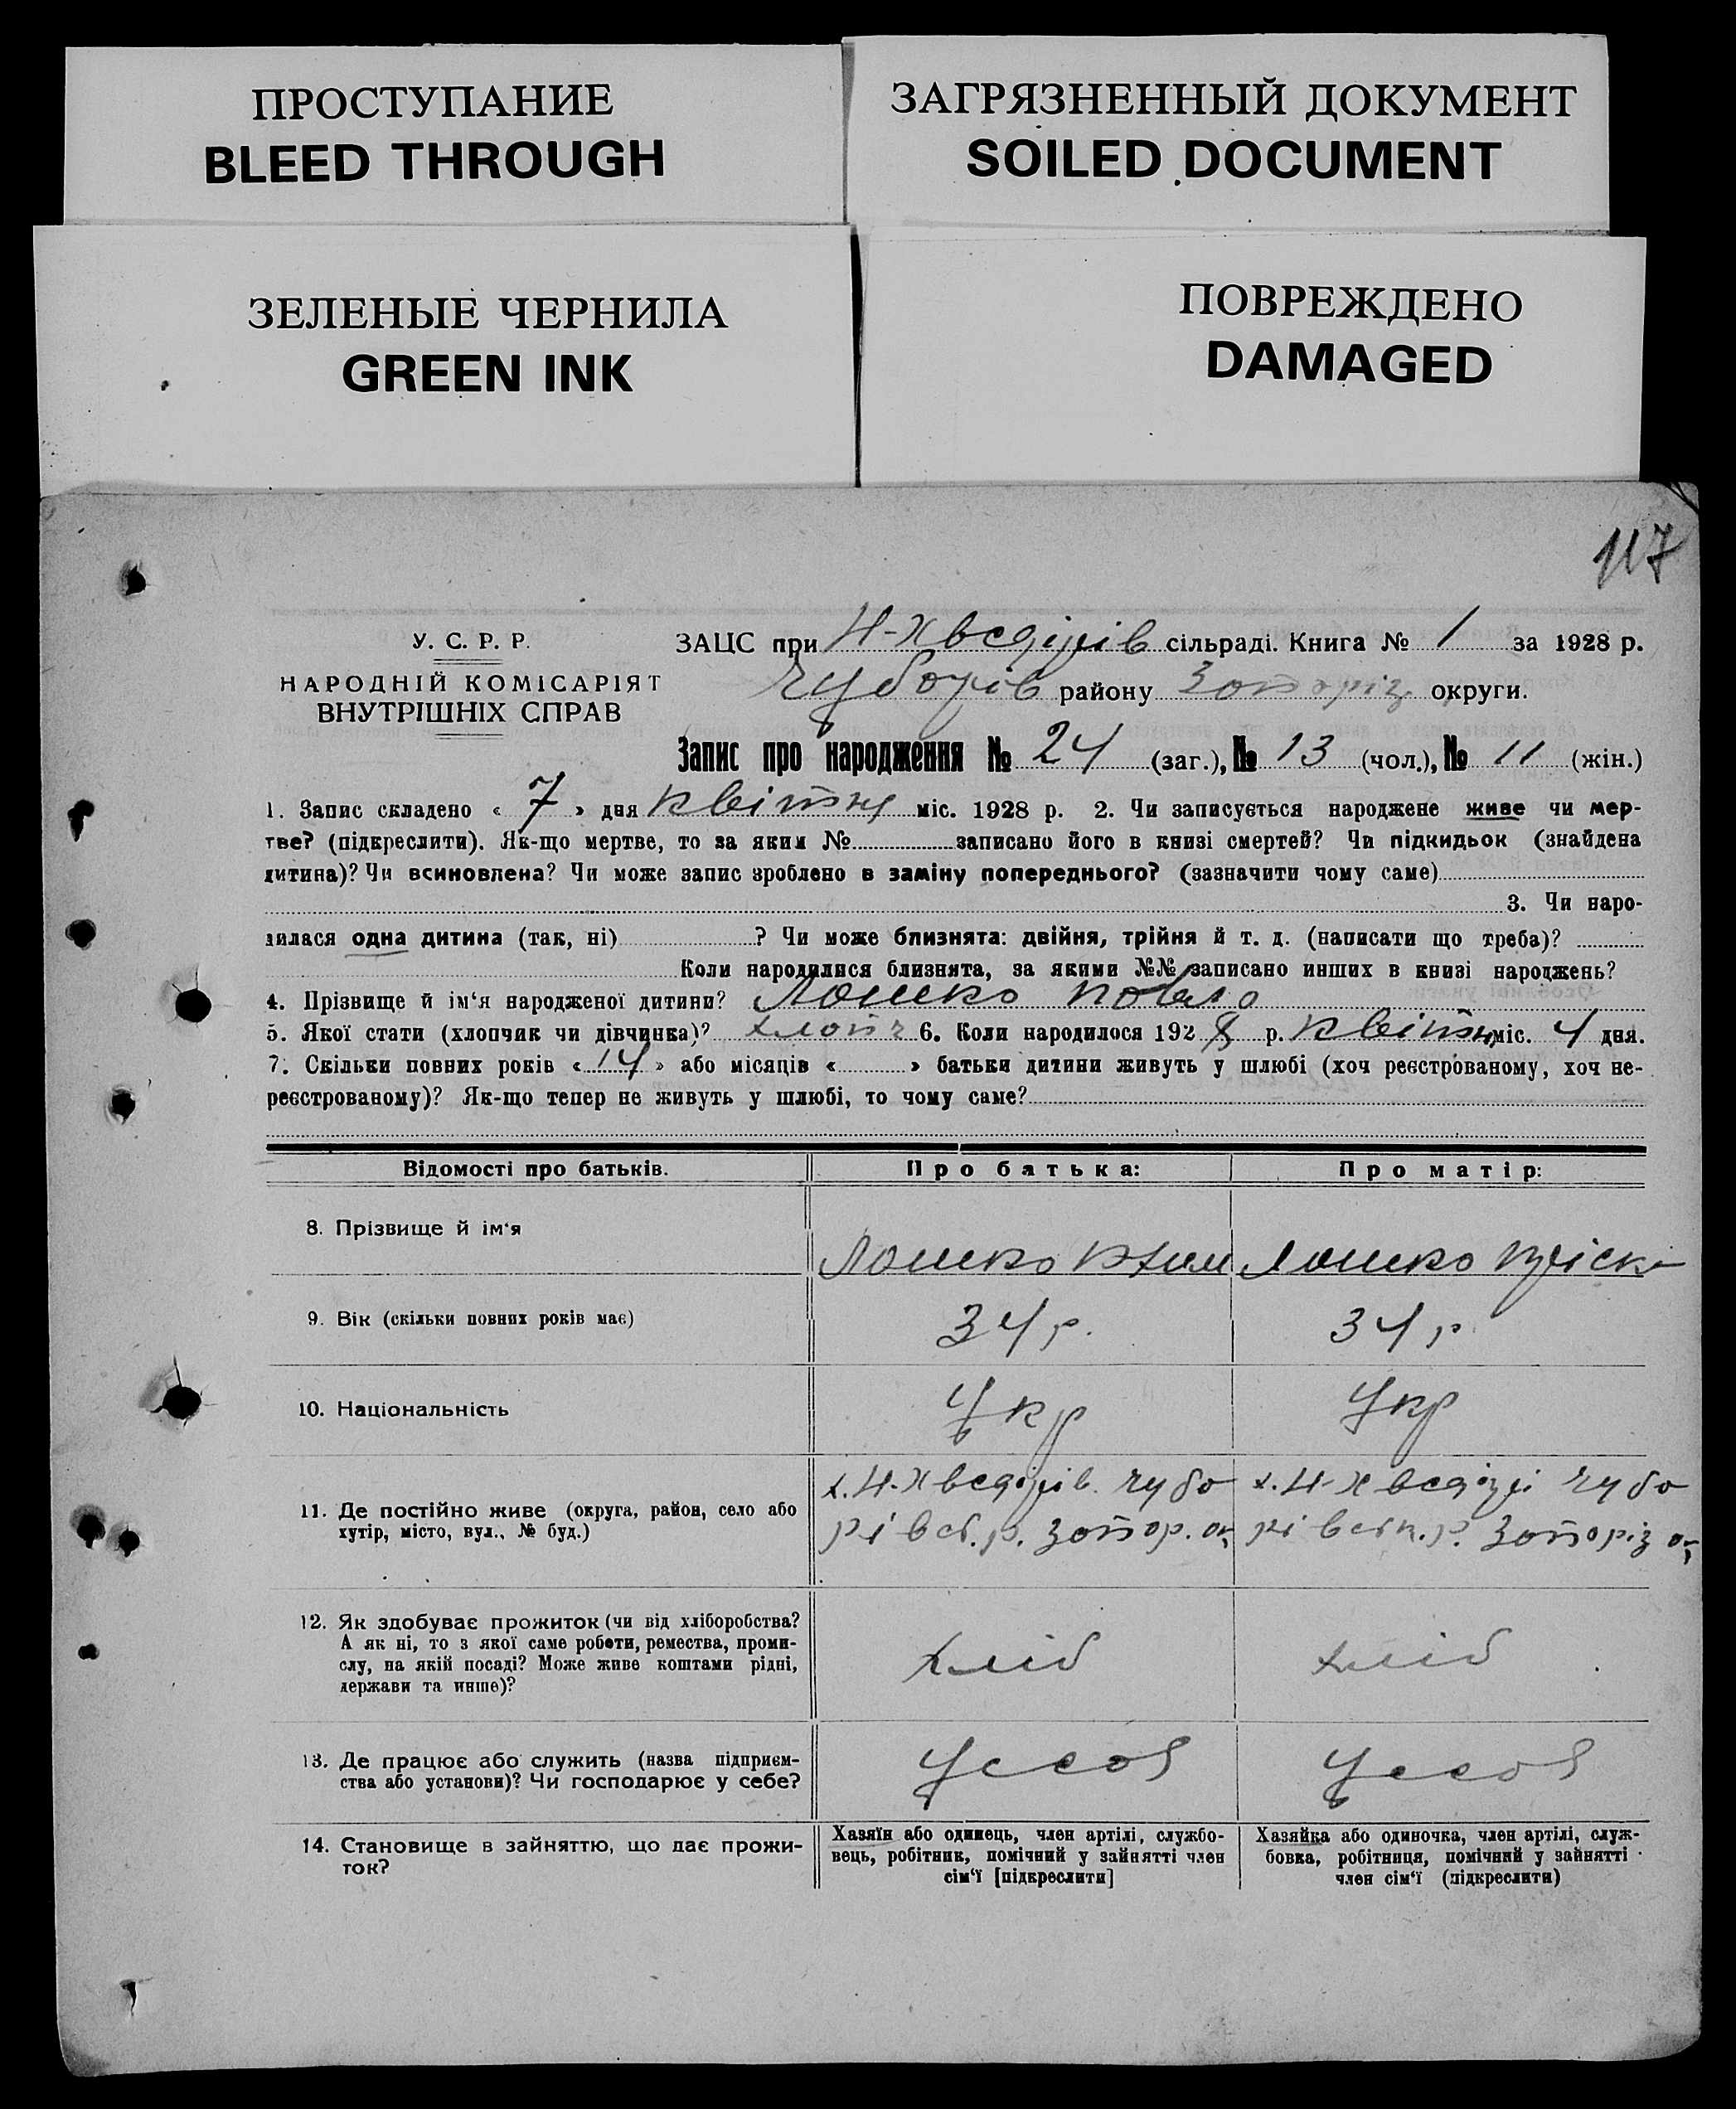 ПРОСТУПАНИЕ
BLEED THROUGH
ЗАГРЯЗНЕННЫЙ ДОКУМЕНТ
SOILED DOCUMENT
ЗЕЛЕНЫЕ ЧЕРНИЛА
GREEN INK
ПОВРЕЖДЕНО
DAMAGED
117
У. С. Р. Р.
НАРОДНІЙ КОМІСАРІЯТ
ВНУТРІШНІХ СПРАВ
ЗАЦС при Н-Хведорів сільраді. Книга № 1 за 1928 р.
Чубарів району Запоріз округи.
Запис про народження № 24 (заг.), № 13 (чол.), № 11 (жін.)
1. Запис складено « 7 » дня квітня міс. 1928 р. 2. Чи записується народжене живе чи мер-
тве? (підкреслити). Як-що мертве, то за яким № записано його в книзі смертей? Чи підкидьок (знайдена
дитина)? Чи всиновлена? Чи може запис зроблено в заміну попереднього? (зазначити чому саме)
3. Чи наро-
дилася одна дитина (так, ні) ? Чи може близнята: двійня, трійня й т. д. (написати що треба)?
Коли народилися близнята, за якими №№ записано инших в книзі народжень?
4. Прізвище й ім‘я народженої дитини? Лошко Повло
5. Якої стати (хлопчик чи дівчинка)? хлопч 6. Коли народилося 192 8 р. квітня міс. 4 дня.
7. Скільки повних років « 14 » або місяців « » батьки дитини живуть у шлюбі (хоч реєстрованому, хоч не-
реєстрованому)? Як-що тепер не живуть у шлюбі, то чому саме?
Відомості про батьків.
Про батька:
Про матір:
8. Прізвище й ім‘я
Лошко
Лошко
9. Вік (скільки повних років має)
34 р.
34 р
10. Національність
Укр
Укр
11. Де постійно живе (округа, район, село або
хутір, місто, вул., № буд.)
х. Н-Хведорів. Чубо
рівсь. р. Запор. ок
х. Н-Хведорі Чубо
рівськ. р. Запоріз ок
12. Як здобуває прожиток (чи від хліборобства?
А як ні, то з якої саме роботи, ремества, проми-
слу, на якій посаді? Може живе коштами рідні,
держави та инше)?
хліб
хліб
13. Де працює або служить (назва підприєм-
ства або установи)? Чи господарює у себе?
У себе
У себе
14. Становище в зайняттю, що дає прожи-
ток?
Хазяїн або одинець, член артілі, службо-
вець, робітник, помічний у зайнятті член
сім‘ї [підкреслити]
Хазяйка або одиночка, член артілі, служ-
бовка, робітниця, помічний у зайнятті
член сім‘ї (підкреслити)